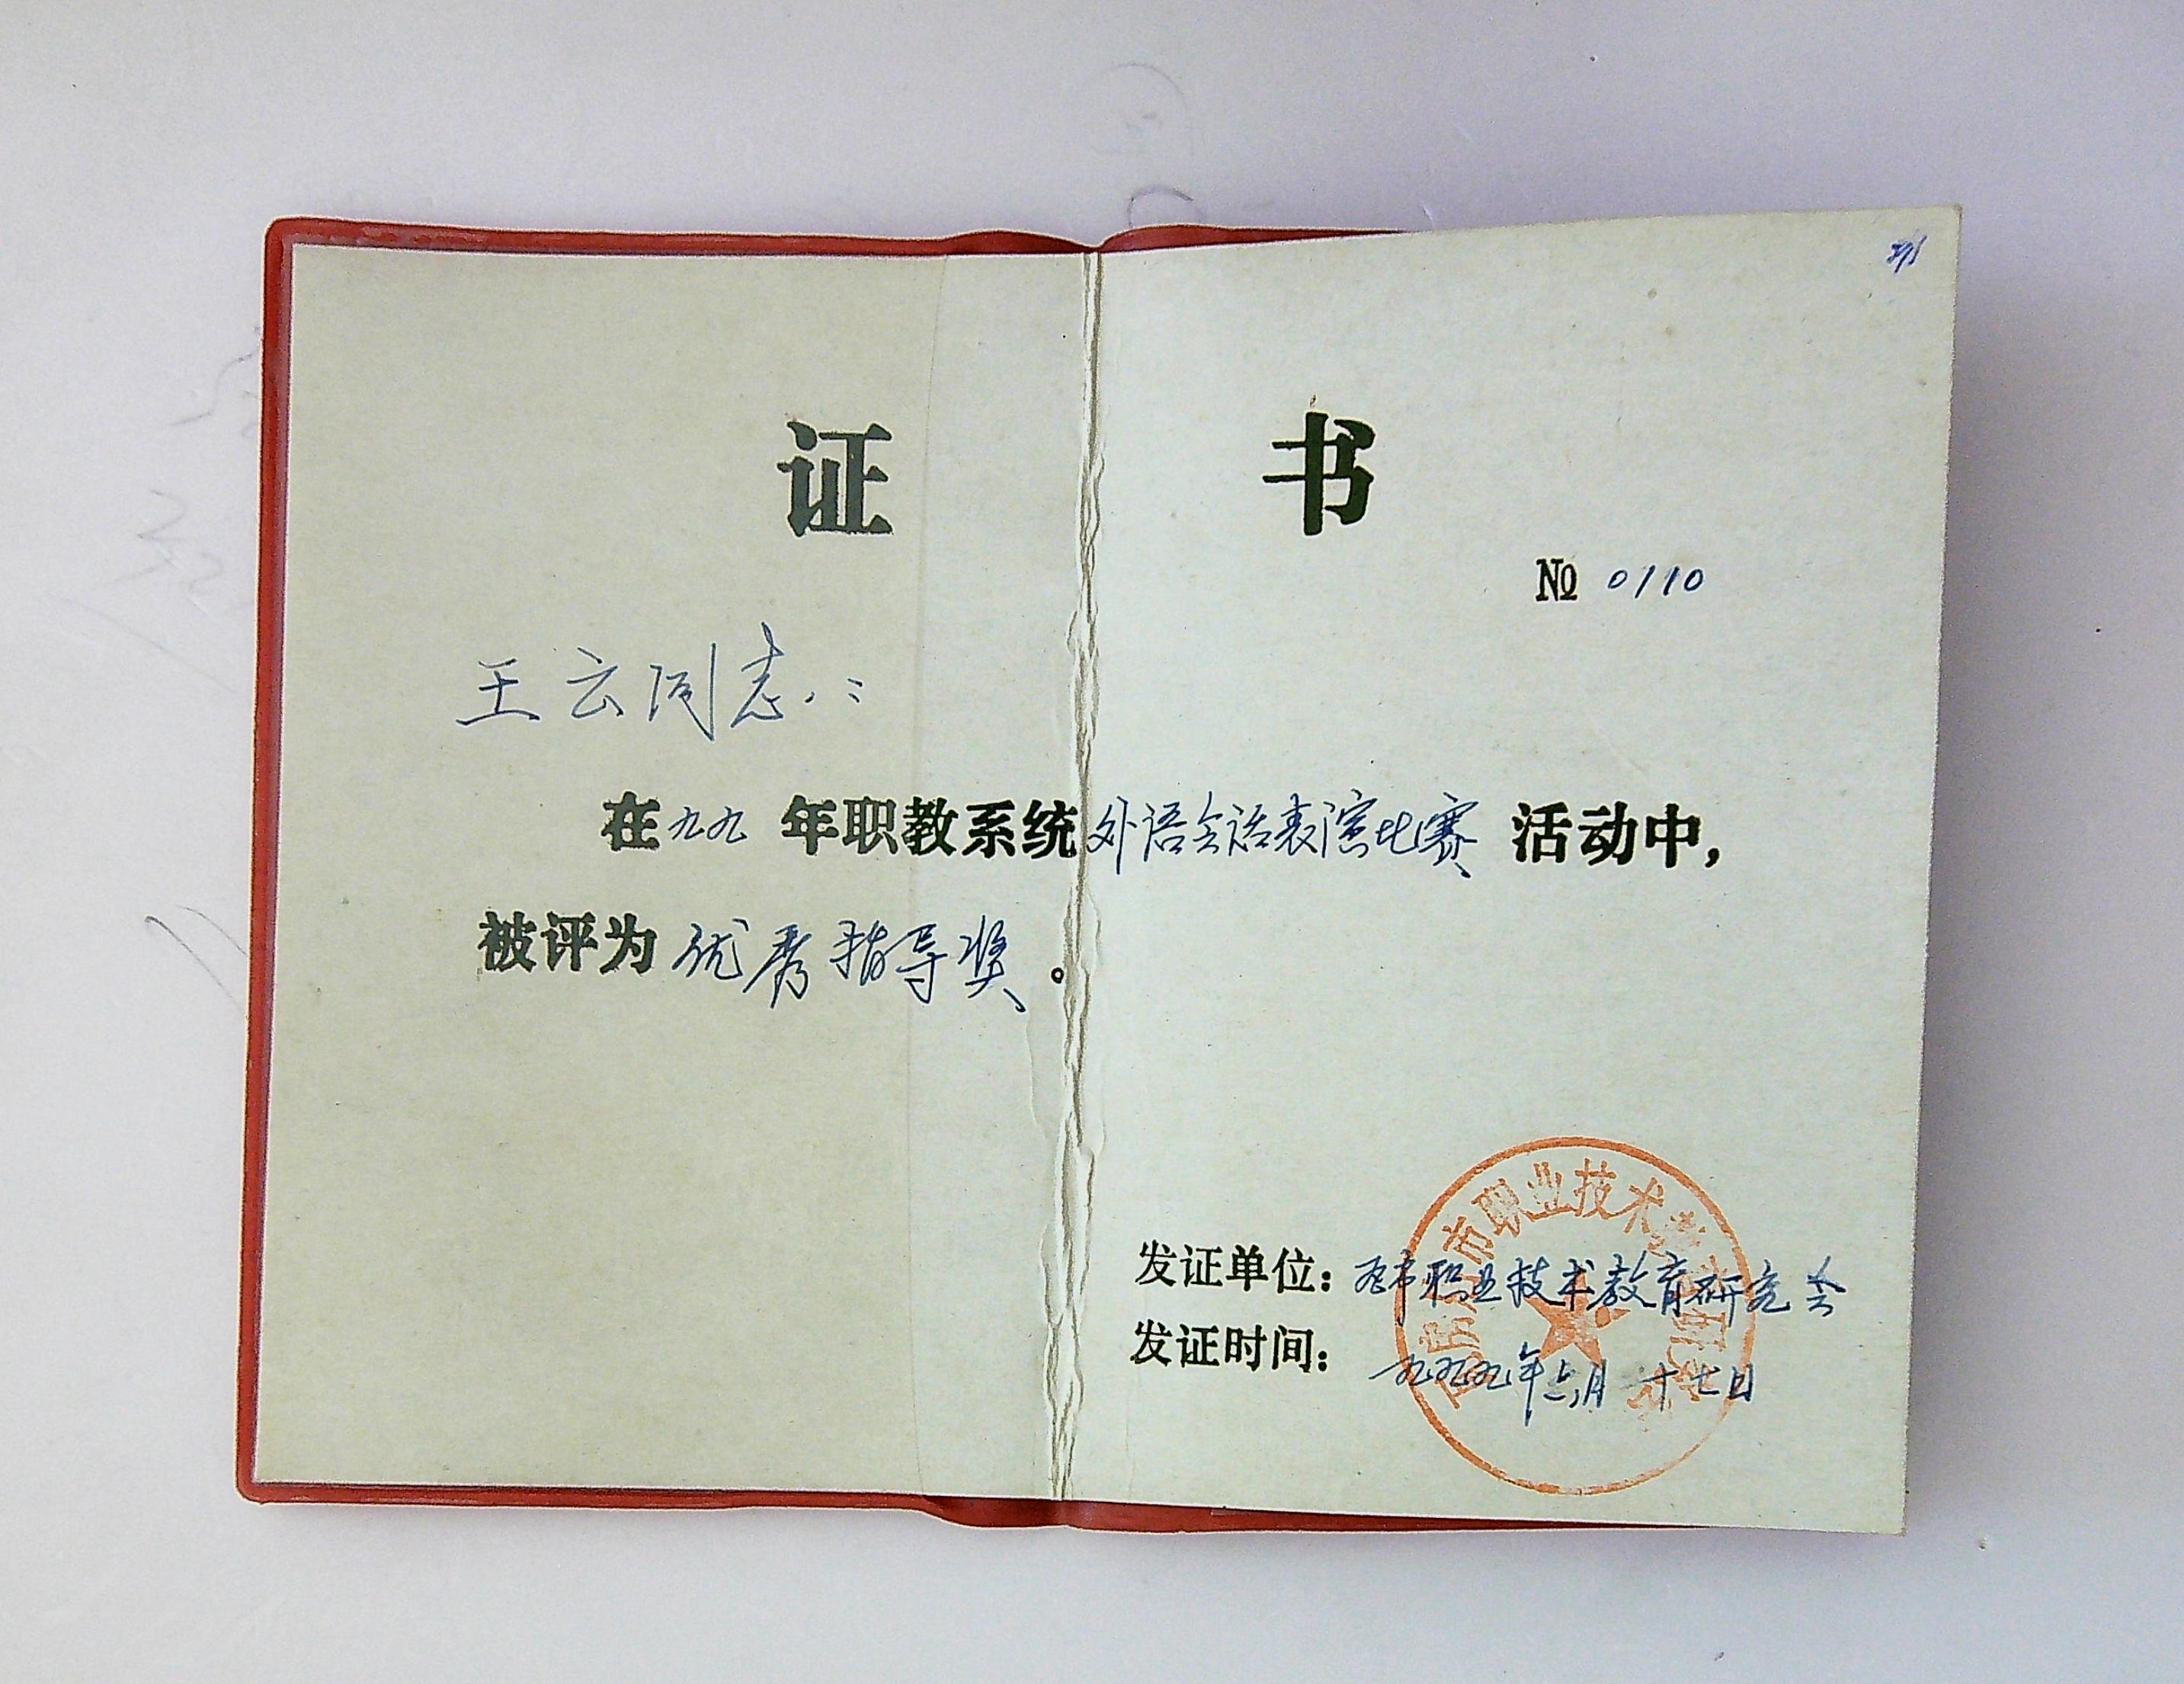 证 书
№ 0110
王云同志：
在九九年职教系统外语会话表演比赛活动中，
被评为优秀指导奖。
发证单位：市职业技术教育研究会
发证时间：一九九九年六月二十七日
市职业技术教育研究会